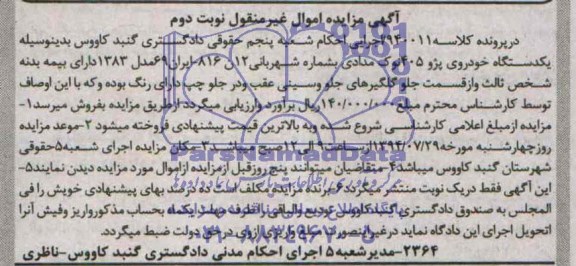 آگهی مزایده اموال غیرمنقول نوبت دوم
درپرونده کلاسه ۹۴۰۰۱۱ اجرایی احکام شعبه پنجم حقوقی دادگستری گنبد کاووس بدینوسیله
یکدستگاه خودروی پژو ۴۰۵ نوک مدادی بشماره شهربانی ۱۲ل ۸۱۶-ایران ۶۹ مدل ۱۳۸۳ دارای بیمه بدنه
شخص ثالث وازقسمت جلو گلگیرهای جلو وسینی عقب ودر جلو چپ دارای رنگ بوده وکه با این اوصاف
توسط کارشناس محترم مبلغ ۱۴۰/۰۰۰/۰۰۰ ریال برآورد وارزیابی میگردد ازطریق مزایده بفروش میرسد ۱-
مزایده ازمبلغ اعلامی کارشناسی شروع شده وبه بالاترین قیمت پیشنهادی فروخته میشود ۲-موعد مزایده
روزچهارشنبه مورخه ۱۳۹۴/۰۷/۲۹ ازساعت ۹ الی ۱۲ صبح میباشد ۳-مکان مزایده اجرای شعبه ۵ حقوقی
شهرستان گنبد کاووس میباشد ۴-متقاضیان میتوانند پنج روز قبل ازمزایده ازاموال مورد مزایده دیدن نمایند ۵-
این آگهی فقط دریک نوبت منتشر میگردد ۶-برنده مزایده مکلف است ده درصد بهای پیشنهادی خویش را فی
المجلس به صندوق دادگستری گنبد کاووس تودیع والباقی را ظرف مهلت یکماه بحساب مذکورواریز وفیش آنرا
تحویل اجرای این دادگاه نماید درغیراینصورت مبلغ واریزی ازوی درحق دولت ضبط میگردد.
۲۳۶۴-مدیرشعبه ۵ اجرای احکام مدنی دادگستری گنبد کاووس-ناظری
ParsNamadData